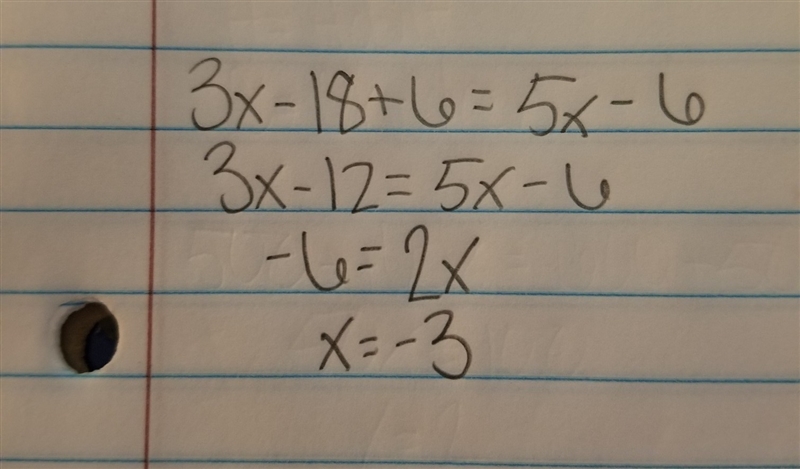 3x-18+6=5x-6
3x-12=5x-6
-6=2x
x=-3